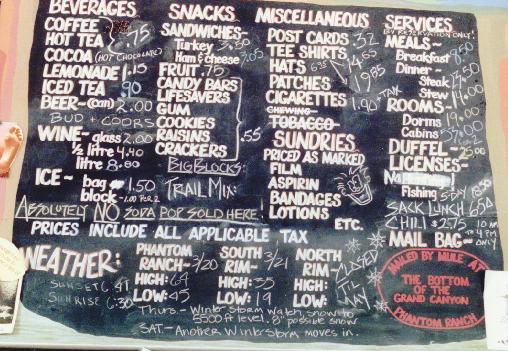 BEVERAGES
COFFEE
HOT TEA
.75
COCOA (HOT CHOCOLATE)
LEMONADE 1.15
ICED TEA .90
BEER~(can) 2.00
BUD + COORS
WINE~ glass 2.00
½ litre 4.40
litre 8.80
ICE~ bag 1.50
block ~1.00 PER 2
ABSOLUTELY NO SODA POP SOLD HERE!
SNACKS
SANDWICHES~
Turkey
Ham & cheese
FRUIT .75
CANDY BARS
LIFESAVERS
GUM
COOKIES
RAISINS
CRACKERS
.55
BIG BLOCKS:
TRAIL MIX:
MISCELLANEOUS
POST CARDS .32
TEE SHIRTS
HATS
PATCHES
CIGARETTES 1.90
CHEWING
TOBACCO
SUNDRIES
PRICED AS MARKED
FILM
ASPIRIN
BANDAGES
LOTIONS
ETC.
SERVICES
(BY RESERVATION ONLY)
MEALS~
Breakfast
Dinner~
Steak
Stew
ROOMS~
Dorms
Cabins
DUFFEL~
LICENSES~
Fishing
SACK LUNCH
CHILI $2.75
MAIL BAG~ ONLY
PRICES INCLUDE ALL APPLICABLE TAX
WEATHER:
SUNSET
SUNRISE 6:30
PHANTOM
RANCH~ 3/20
HIGH: 64
LOW: 45
SOUTH 3/21
RIM~
HIGH: 35
LOW: 19
NORTH
RIM~ CLOSED
HIGH: TIL
LOW: MAY
Thurs.~ Winter Storm Watch, snow to
5500 ft level. 8" possible snow
SAT.~ Another Winter storm moves in.
MAILED BY MULE AT
THE BOTTOM
OF THE
GRAND CANYON
PHANTOM RANCH